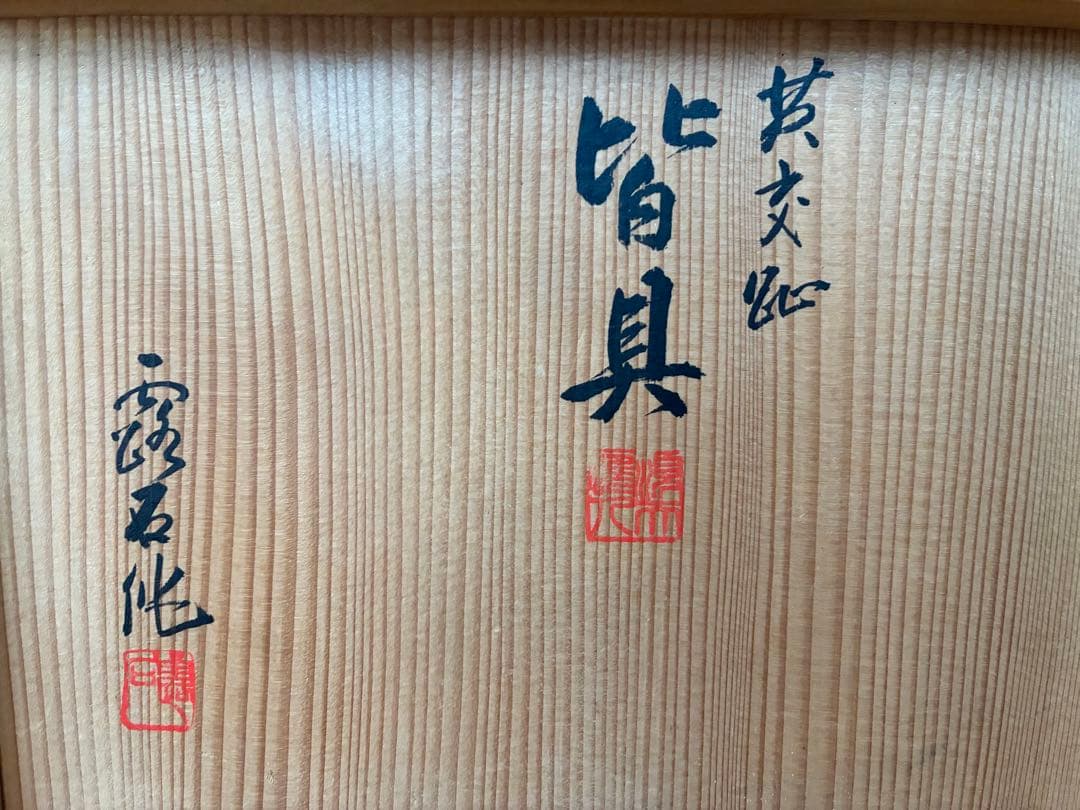 黄交趾
皆具
露石作